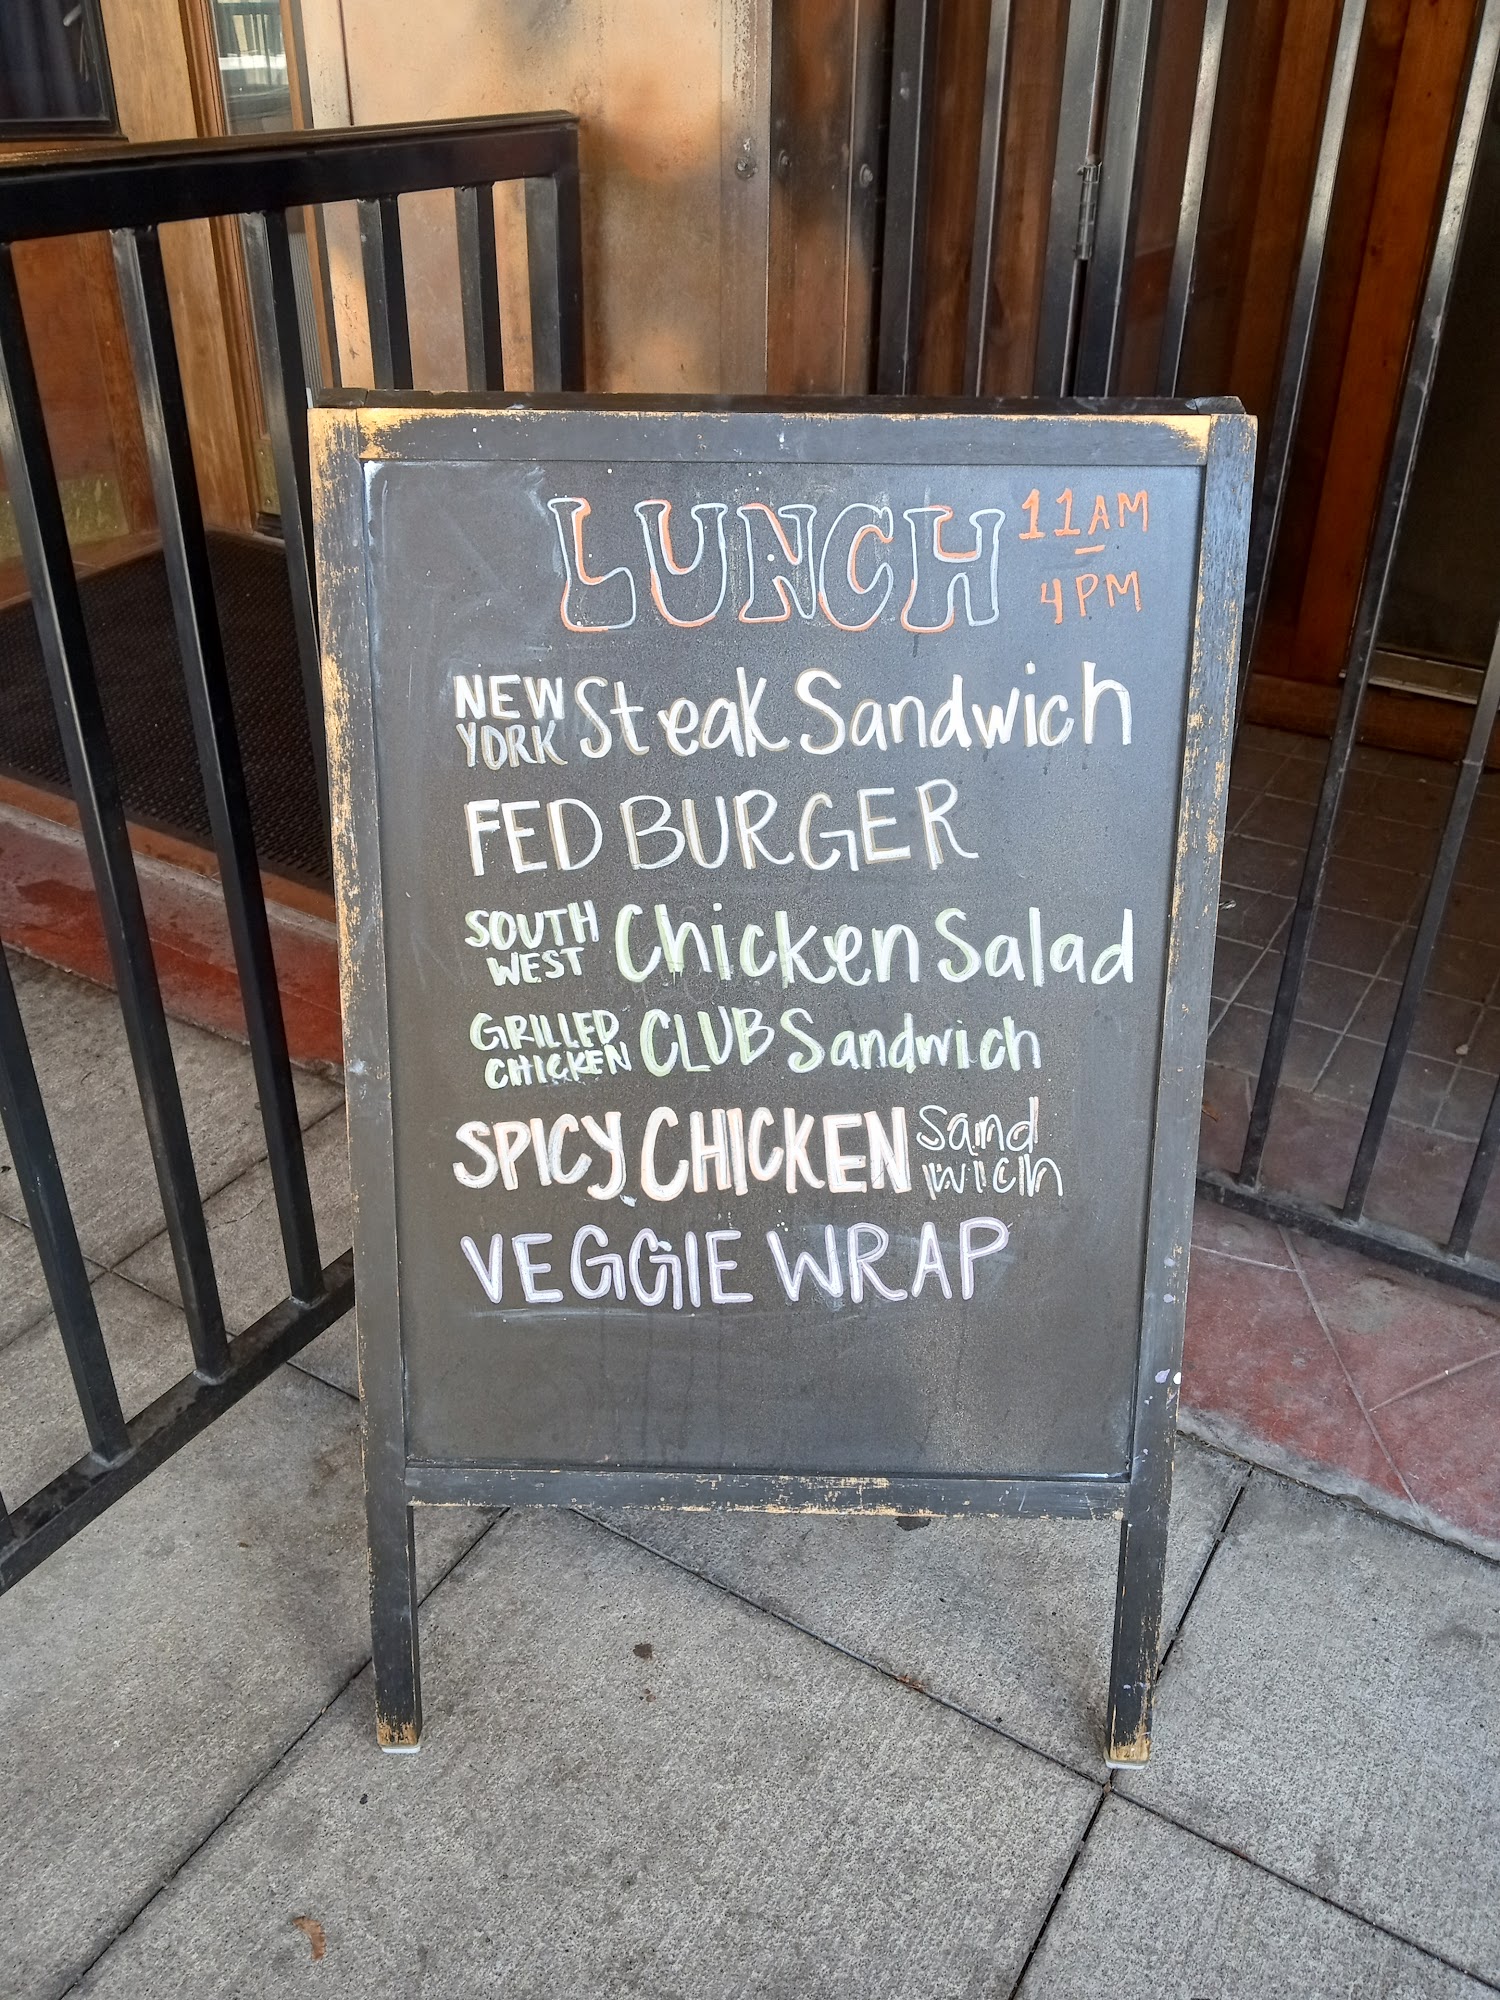 LUNCH 11AM - 4PM
NEW YORK Steak Sandwich
FED BURGER
SOUTH WEST Chicken Salad
GRILLED CHICKEN CLUB Sandwich
SPICY CHICKEN Sand wich
VEGGIE WRAP